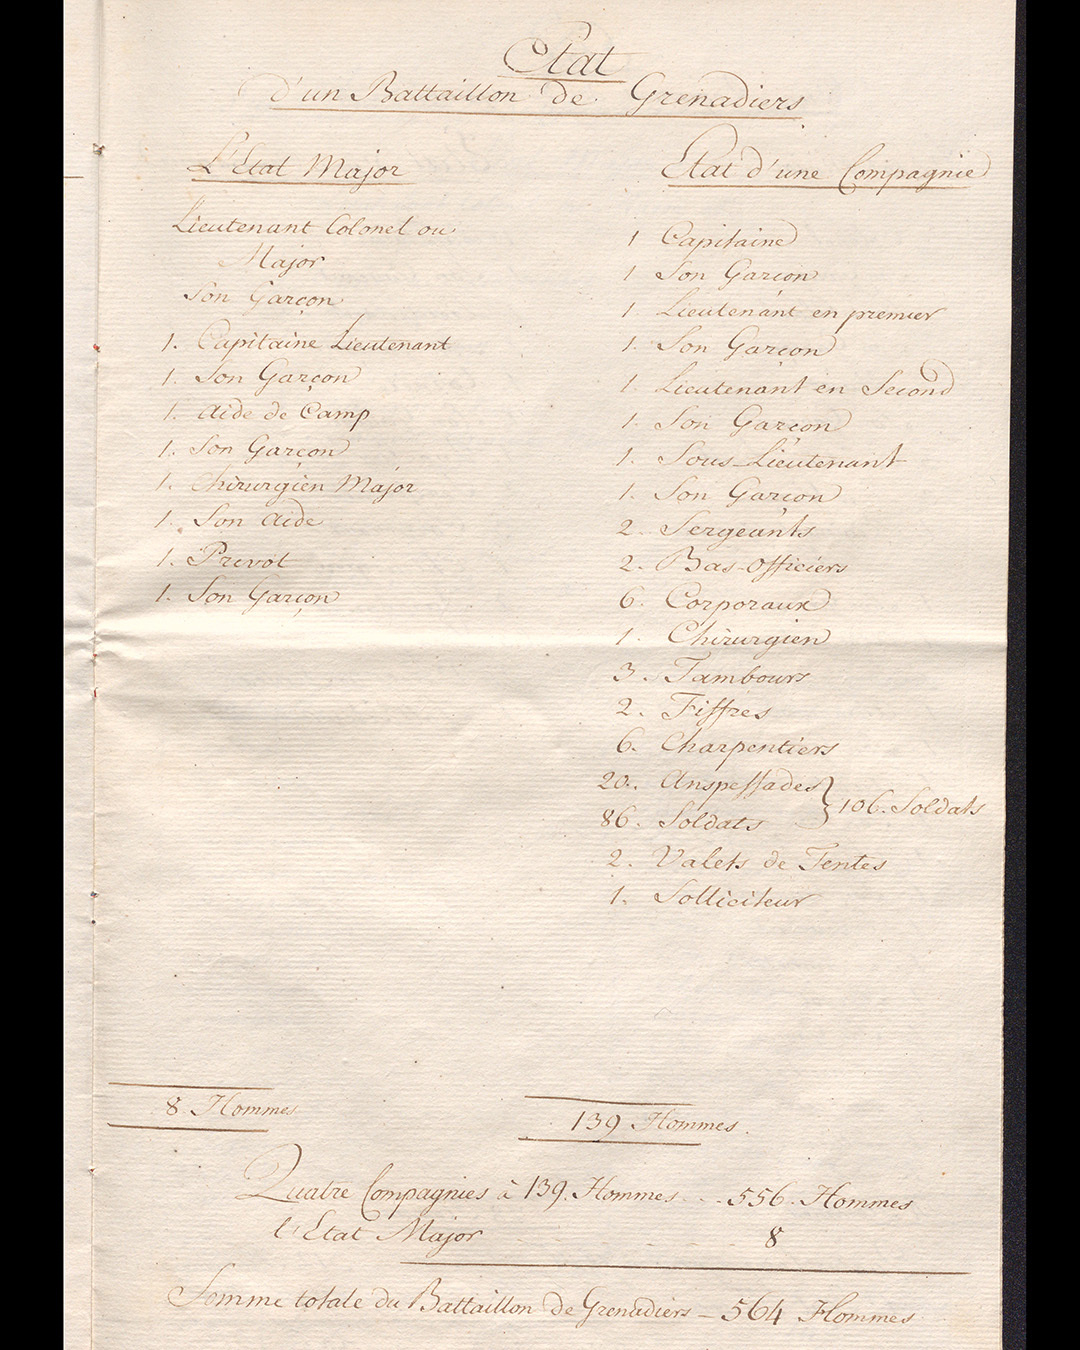 Etat
d'un Battaillon de Grenadiers
L'Etat Major
Lieutenant Colonel ou
Major
Son Garçon
1. Capitaine Lieutenant
1. Son Garçon
1. Aide de Camp
1. Son Garçon
1. Chirurgien Major
1. Son Aide
1. Prevôt
1. Son Garçon
8. Hommes
Etat d'une Compagnie
1 Capitaine
1 Son Garçon
1. Lieutenant en premier
1. Son Garçon
1. Lieutenant en Second
1. Son Garçon
1. Sous-Lieutenant
1. Son Garçon
2. Sergeants
2. Bas-Officiers
6. Corporaux
1. Chirurgien
3. Tambours
2. Fiffres
6. Charpentiers
20. Anspessades
86. Soldats
106. Soldats
2. Valets de Tentes
1. Solliciteur
139 Hommes.
Quatre Compagnies à 139. Hommes - - 556. Hommes
l'Etat Major - - - - - 8
Somme totale du Battaillon de Grenadiers - 564 Hommes